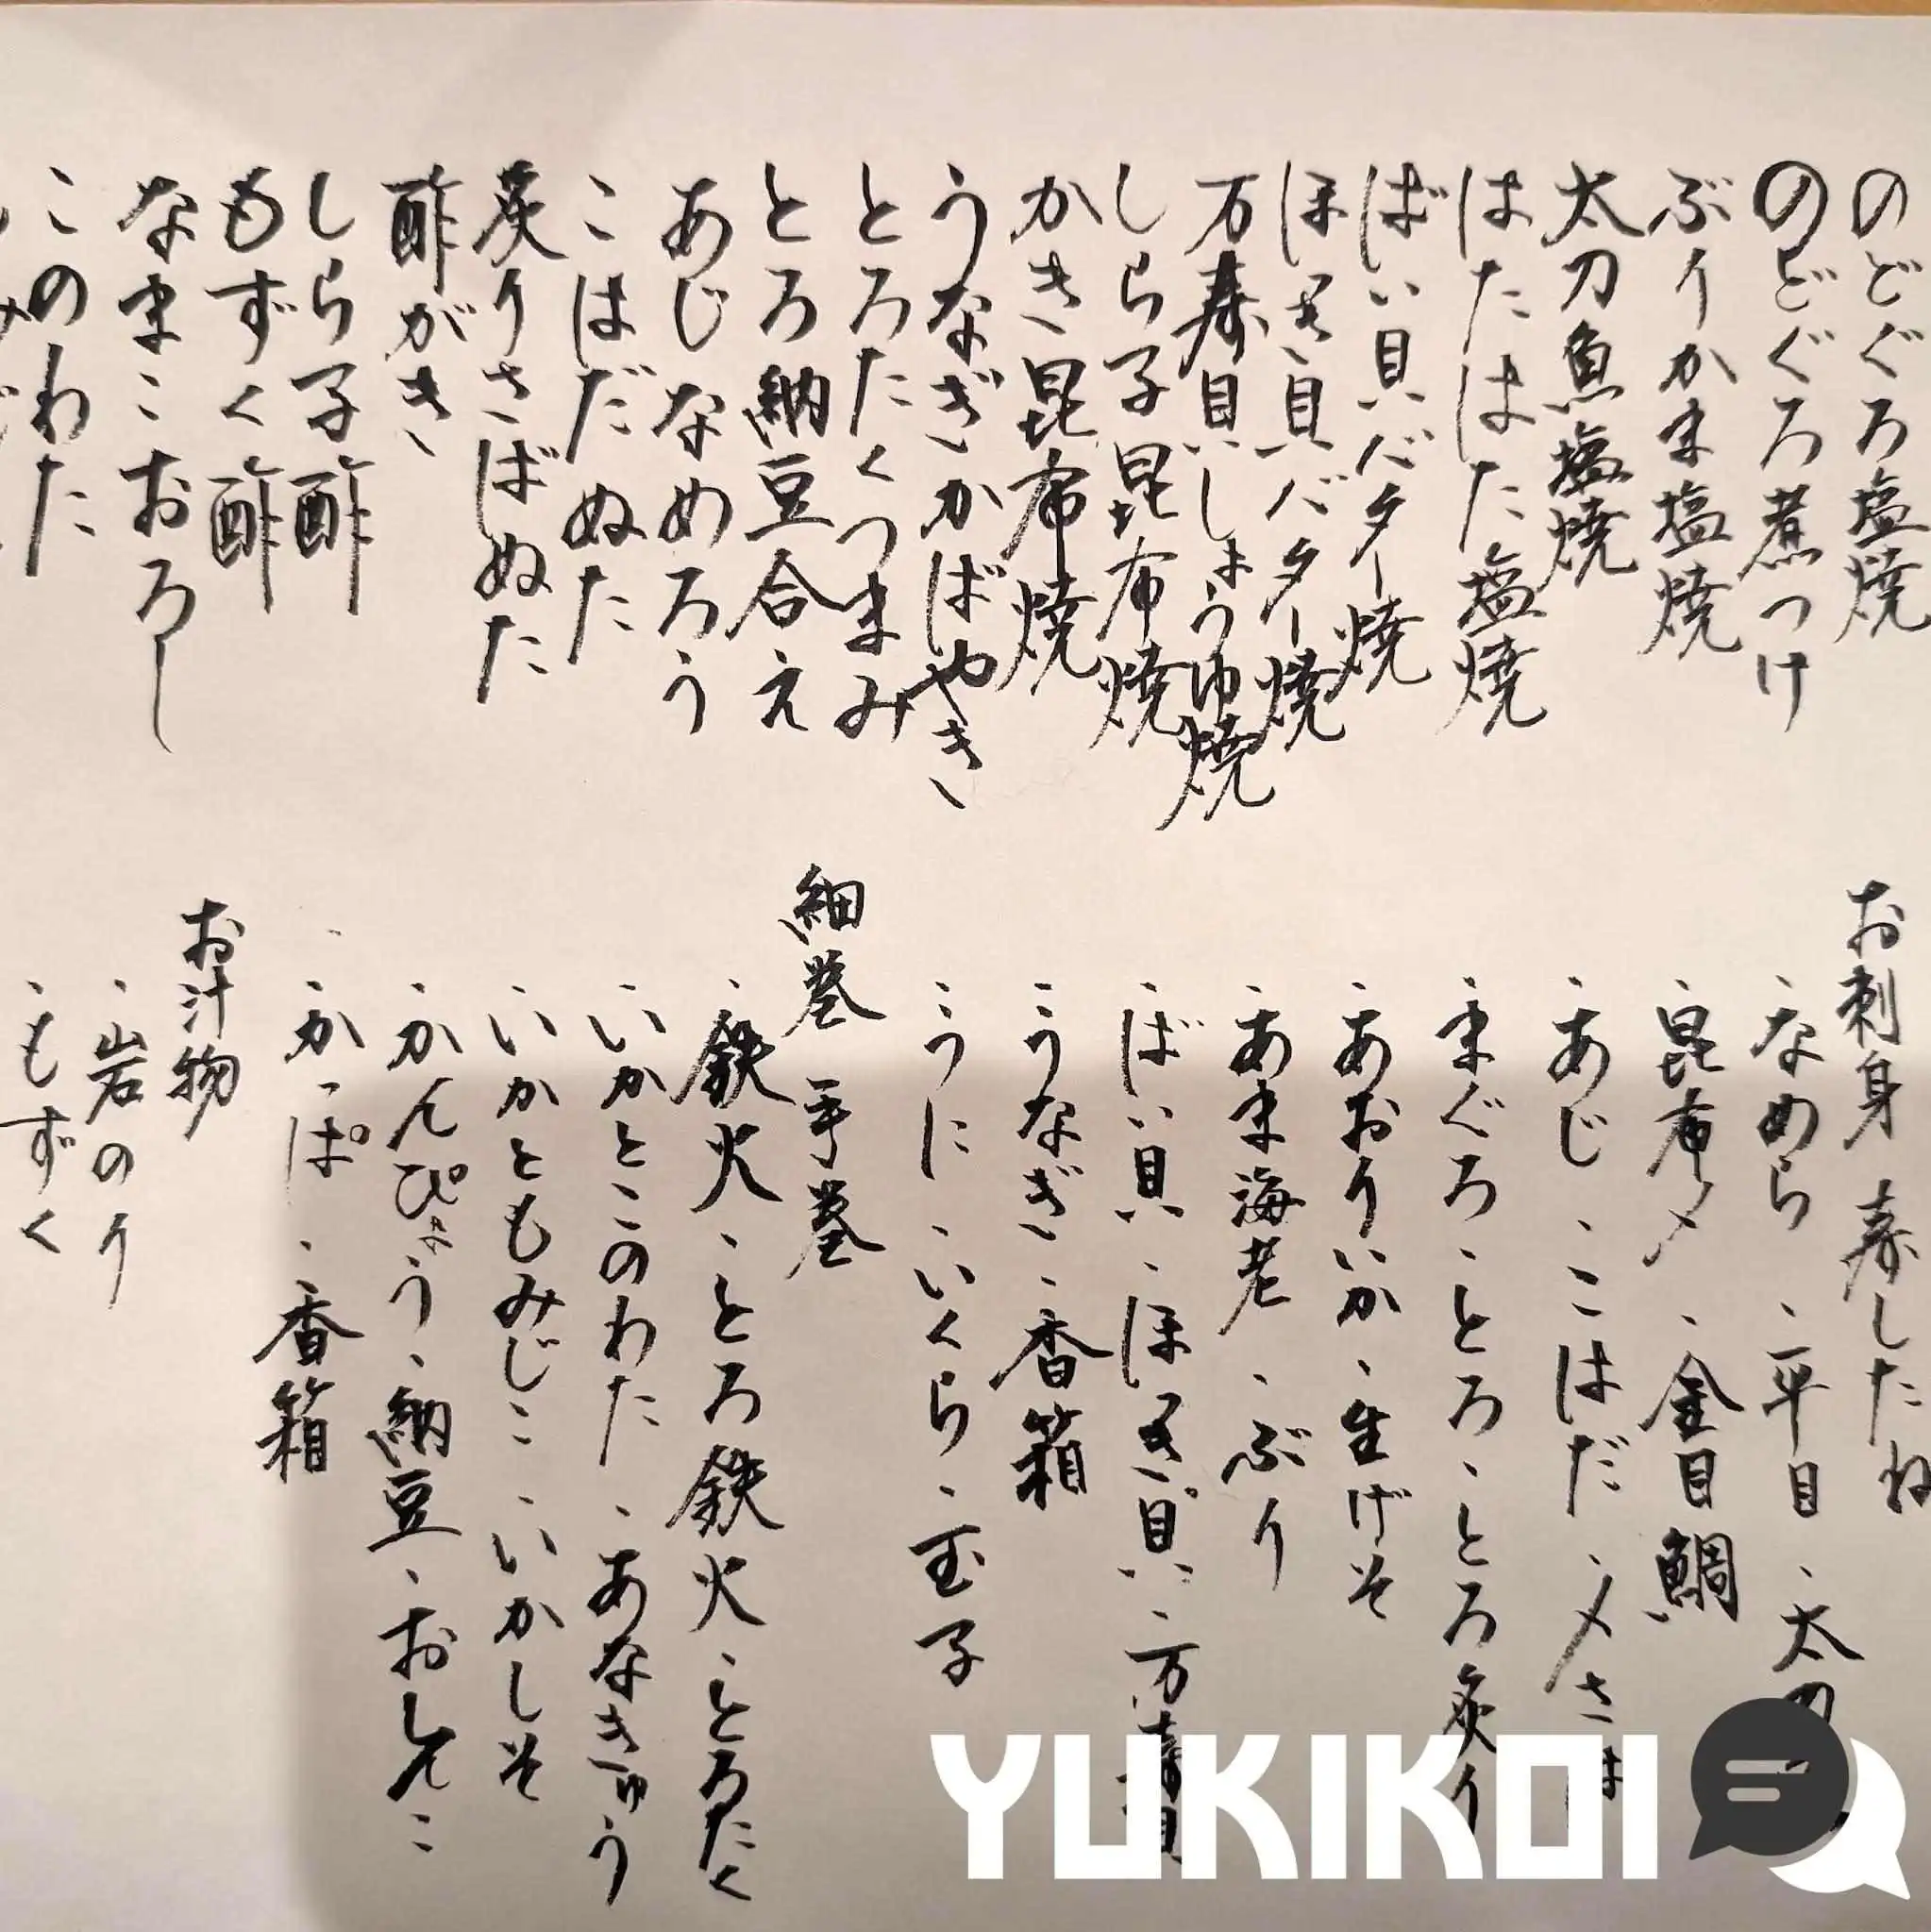 のどぐろ塩焼
のどぐろ煮つけ
ぶりかま塩焼
太刀魚塩焼
はたはた塩焼
ばい貝バター焼
ほっき貝バター焼
万寿貝しょうゆ焼
しら子昆布焼
かき昆布焼
うなぎかばやき
とろたくつまみ
とろ納豆合え
あじなめろう
こはだぬた
炙りさばぬた
酢がき
しら子酢
もずく酢
なまこおろし
このわた
お刺身 寿したね
・なめら ・平目 ・太刀
・昆布〆 ・金目鯛
・あじ ・こはだ ・〆さば
・まぐろ ・とろ ・とろ炙り
・あおりいか ・生げそ
・あま海老 ・ぶり
・ばい貝 ・ほっき貝 ・万寿貝
・うなぎ ・香箱
・うに ・いくら ・玉子
細巻 手巻
・鉄火 ・とろ鉄火 ・とろたく
・いかとこのわた ・あなきゅう
・いかともみじこ ・いかしそ
・かんぴょう ・納豆 ・おしんこ
・かっぱ ・香箱
お汁物
・岩のり
・もずく
YUKIKOI